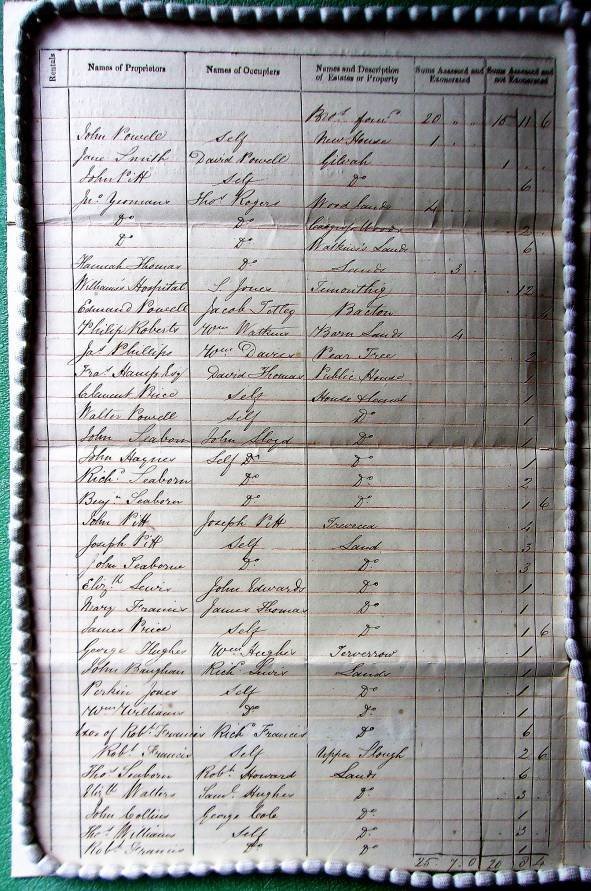 Rentals Names of Proprietors Names of Occupiers Names and Description of Estates or Property Sums Assessed and Exonerated Sums Assessed and not Exonerated
Bro.t for.d 20 " " 15 11 6
John Powell Self New House 1
Jane Smith David Powell Gilvah 1
John Pitt Self Do 6
Jno Yeomans Thos Rogers Wood Lands 4
Do Do 2
Do Do Watkins Lands 6
Hannah Thomas Do Lands 3
Williams Hospital S Jones 12
Edmund Powell Jacob Tetley Bacton
Philip Roberts Wm Watkins Barn Lands 4
Jas Phillips Wm Davies Pear Tree 2
Fras Hamp Esq David Thomas Public House 1
Clement Price Self House & Land 1
Walter Powell Self Do 1
John Seaborn John Lloyd Do 1
John Haynes Self Do Do 1
Richd Seaborn Do Do 2
Benjn Seaborn Do Do 1 6
John Pitt Joseph Pitt Trevecca 4
Joseph Pitt Self Land 3
John Seaborne Do Do 3
Elizth Lewis John Edwards Do 1
Mary Francis James Thomas Do 1
James Price Self Do 1 6
George Hughes Wm Hughes Terverrow 1
John Baughan Richd Lewis Lands 1
Perkin Jones Self Do 1
Wm Williams Do Do 1
Exor of Robt Francis Richd Francis Do 6
Robt Francis Self Upper Slough 2 6
Thos Seaborn Robt Howard Lands 6
Elizth Walters Saml Hughes Do 3
John Collins George Cole Do 1
Thos Williams Self Do 3
Robt Francis Do Do 1
25 7 0 20 8 4